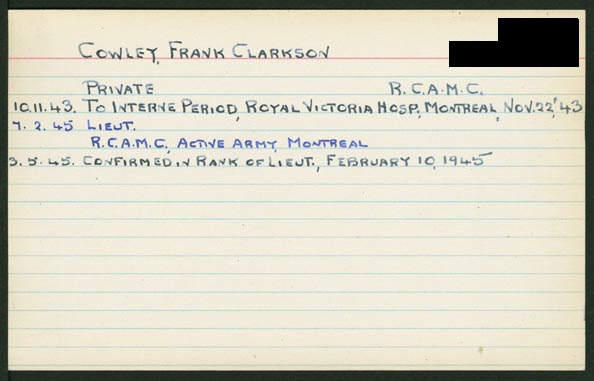 COWLEY, FRANK CLARKSON
PRIVATE R.C.A.M.C.
10.11.43. TO INTERNE PERIOD, ROYAL VICTORIA HOSP., MONTREAL, NOV. 22, '43
7.2.45 LIEUT.
R.C.A.M.C., ACTIVE ARMY, MONTREAL
3.5.45. CONFIRMED IN RANK OF LIEUT., FEBRUARY 10, 1945